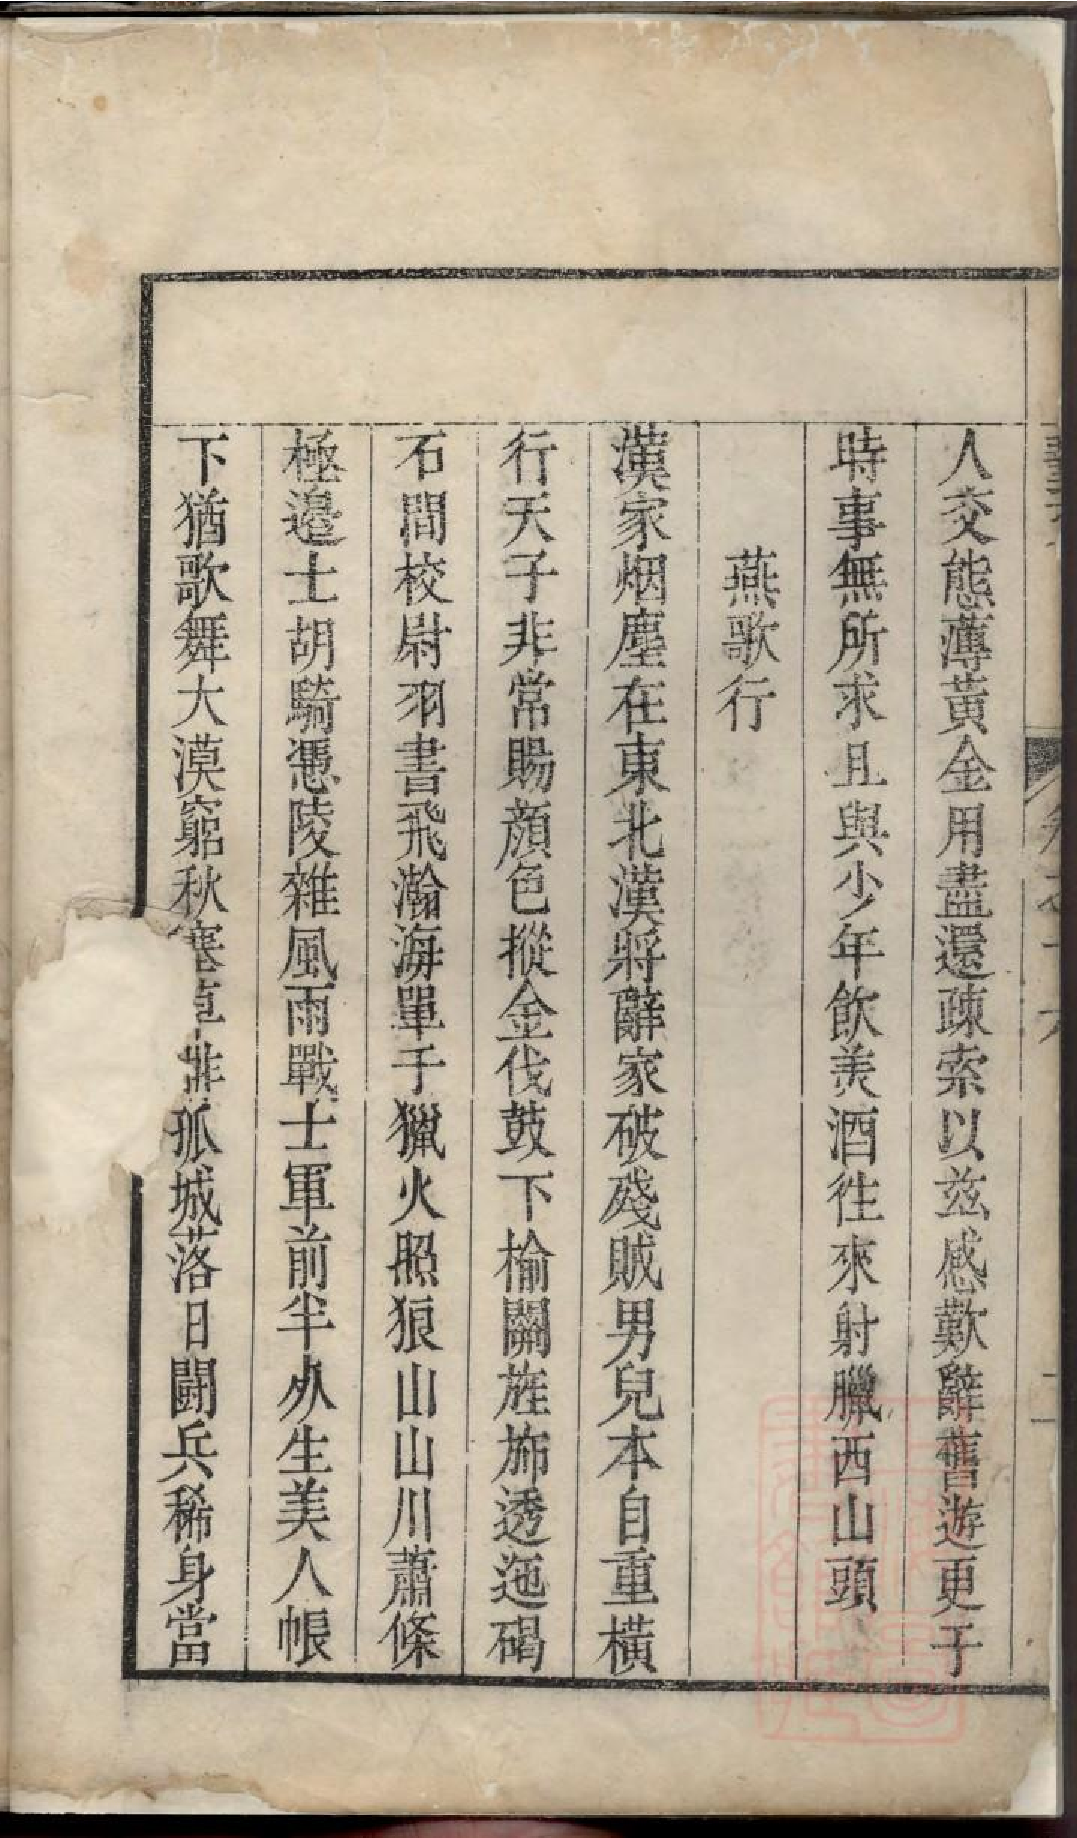 人交態薄黃金用盡還疎索以茲感歎辭舊遊更于
時事無所求且與少年飲美酒徃來射臘西山頭
燕歌行
漢家烟塵在東北漢將辭家破殘賊男兒本自重橫
行天子非常賜顔色摐金伐鼓下榆關旌斾透迤碣
石間校尉羽書飛瀚海單于獵火照狼山山川蕭條
極邉士胡騎憑陵雜風雨戰士軍前半𣦸生美人帳
下猶歌舞大漠窮秋塞草腓孤城落日鬪兵稀身當